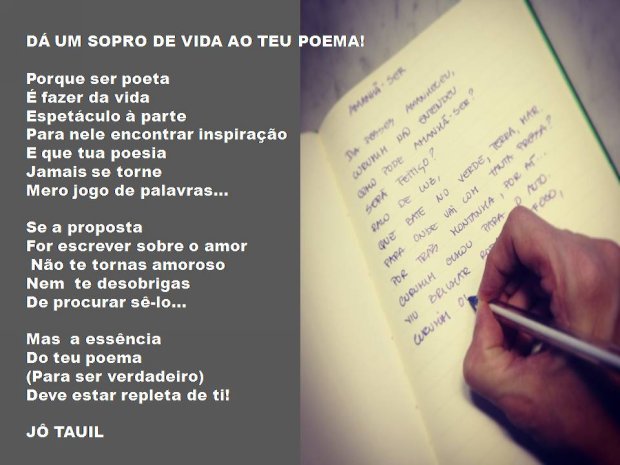 DÁ UM SOPRO DE VIDA AO TEU POEMA!
Porque ser poeta
É fazer da vida
Espetáculo à parte
Para nele encontrar inspiração
E que tua poesia
Jamais se torne
Mero jogo de palavras...
Se a proposta
For escrever sobre o amor
Não te tornas amoroso
Nem te desobrigas
De procurar sê-lo...
Mas a essência
Do teu poema
(Para ser verdadeiro)
Deve estar repleta de ti!
JÔ TAUIL
AMANHÃ-SER
DIA DESSES AMANHECEU,
CURUMIM NÃO ENTENDEU
COMO PODE AMANHÃ-SER?
SERÁ FEITIÇO?
RAIO DE LUZ,
QUE BATE NO VERDE, TERRA, MAR
PARA ONDE VAI COM TANTA PRESSA?
POR TRÁS MONTANHA, POR AÍ...
CURUMIM OLHOU PARA O ALTO.
VIU BRILHAR FOGO,
CURUMIM